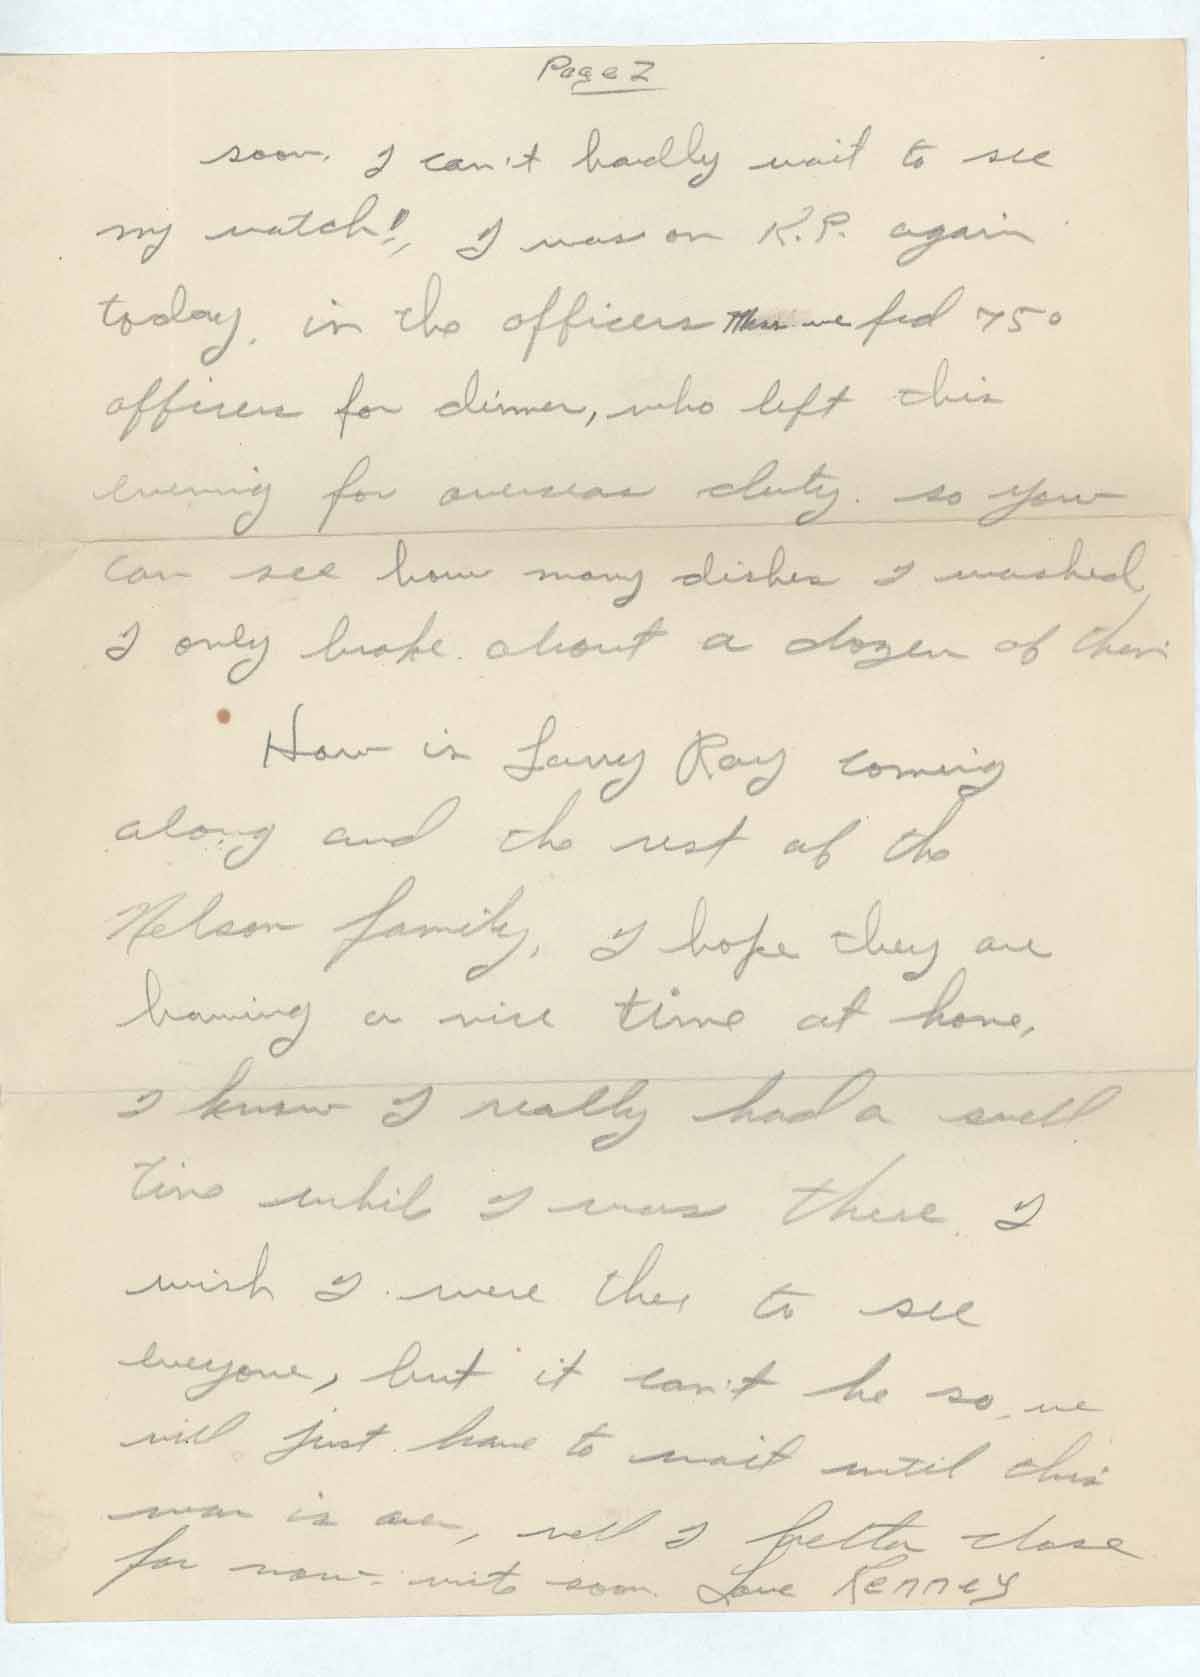 Page 2
soon. I can't hardly wait to see
my watch!, I was on K.P. again
today, in the officers Mess we fed 750
officers for dinner, who left this
evening for overseas duty. so you
can see how many dishes I washed,
I only broke about a dozen of them
How is Larry Ray coming
along and the rest of the
Nelson family, I hope they are
having a nice time at home,
I know I really had a swell
time while I was there. I
wish I were ther to see
everyone, but it can't be so, we
will just have to wait until this
war is over, well I better close
for now. write soon. Love Kenney